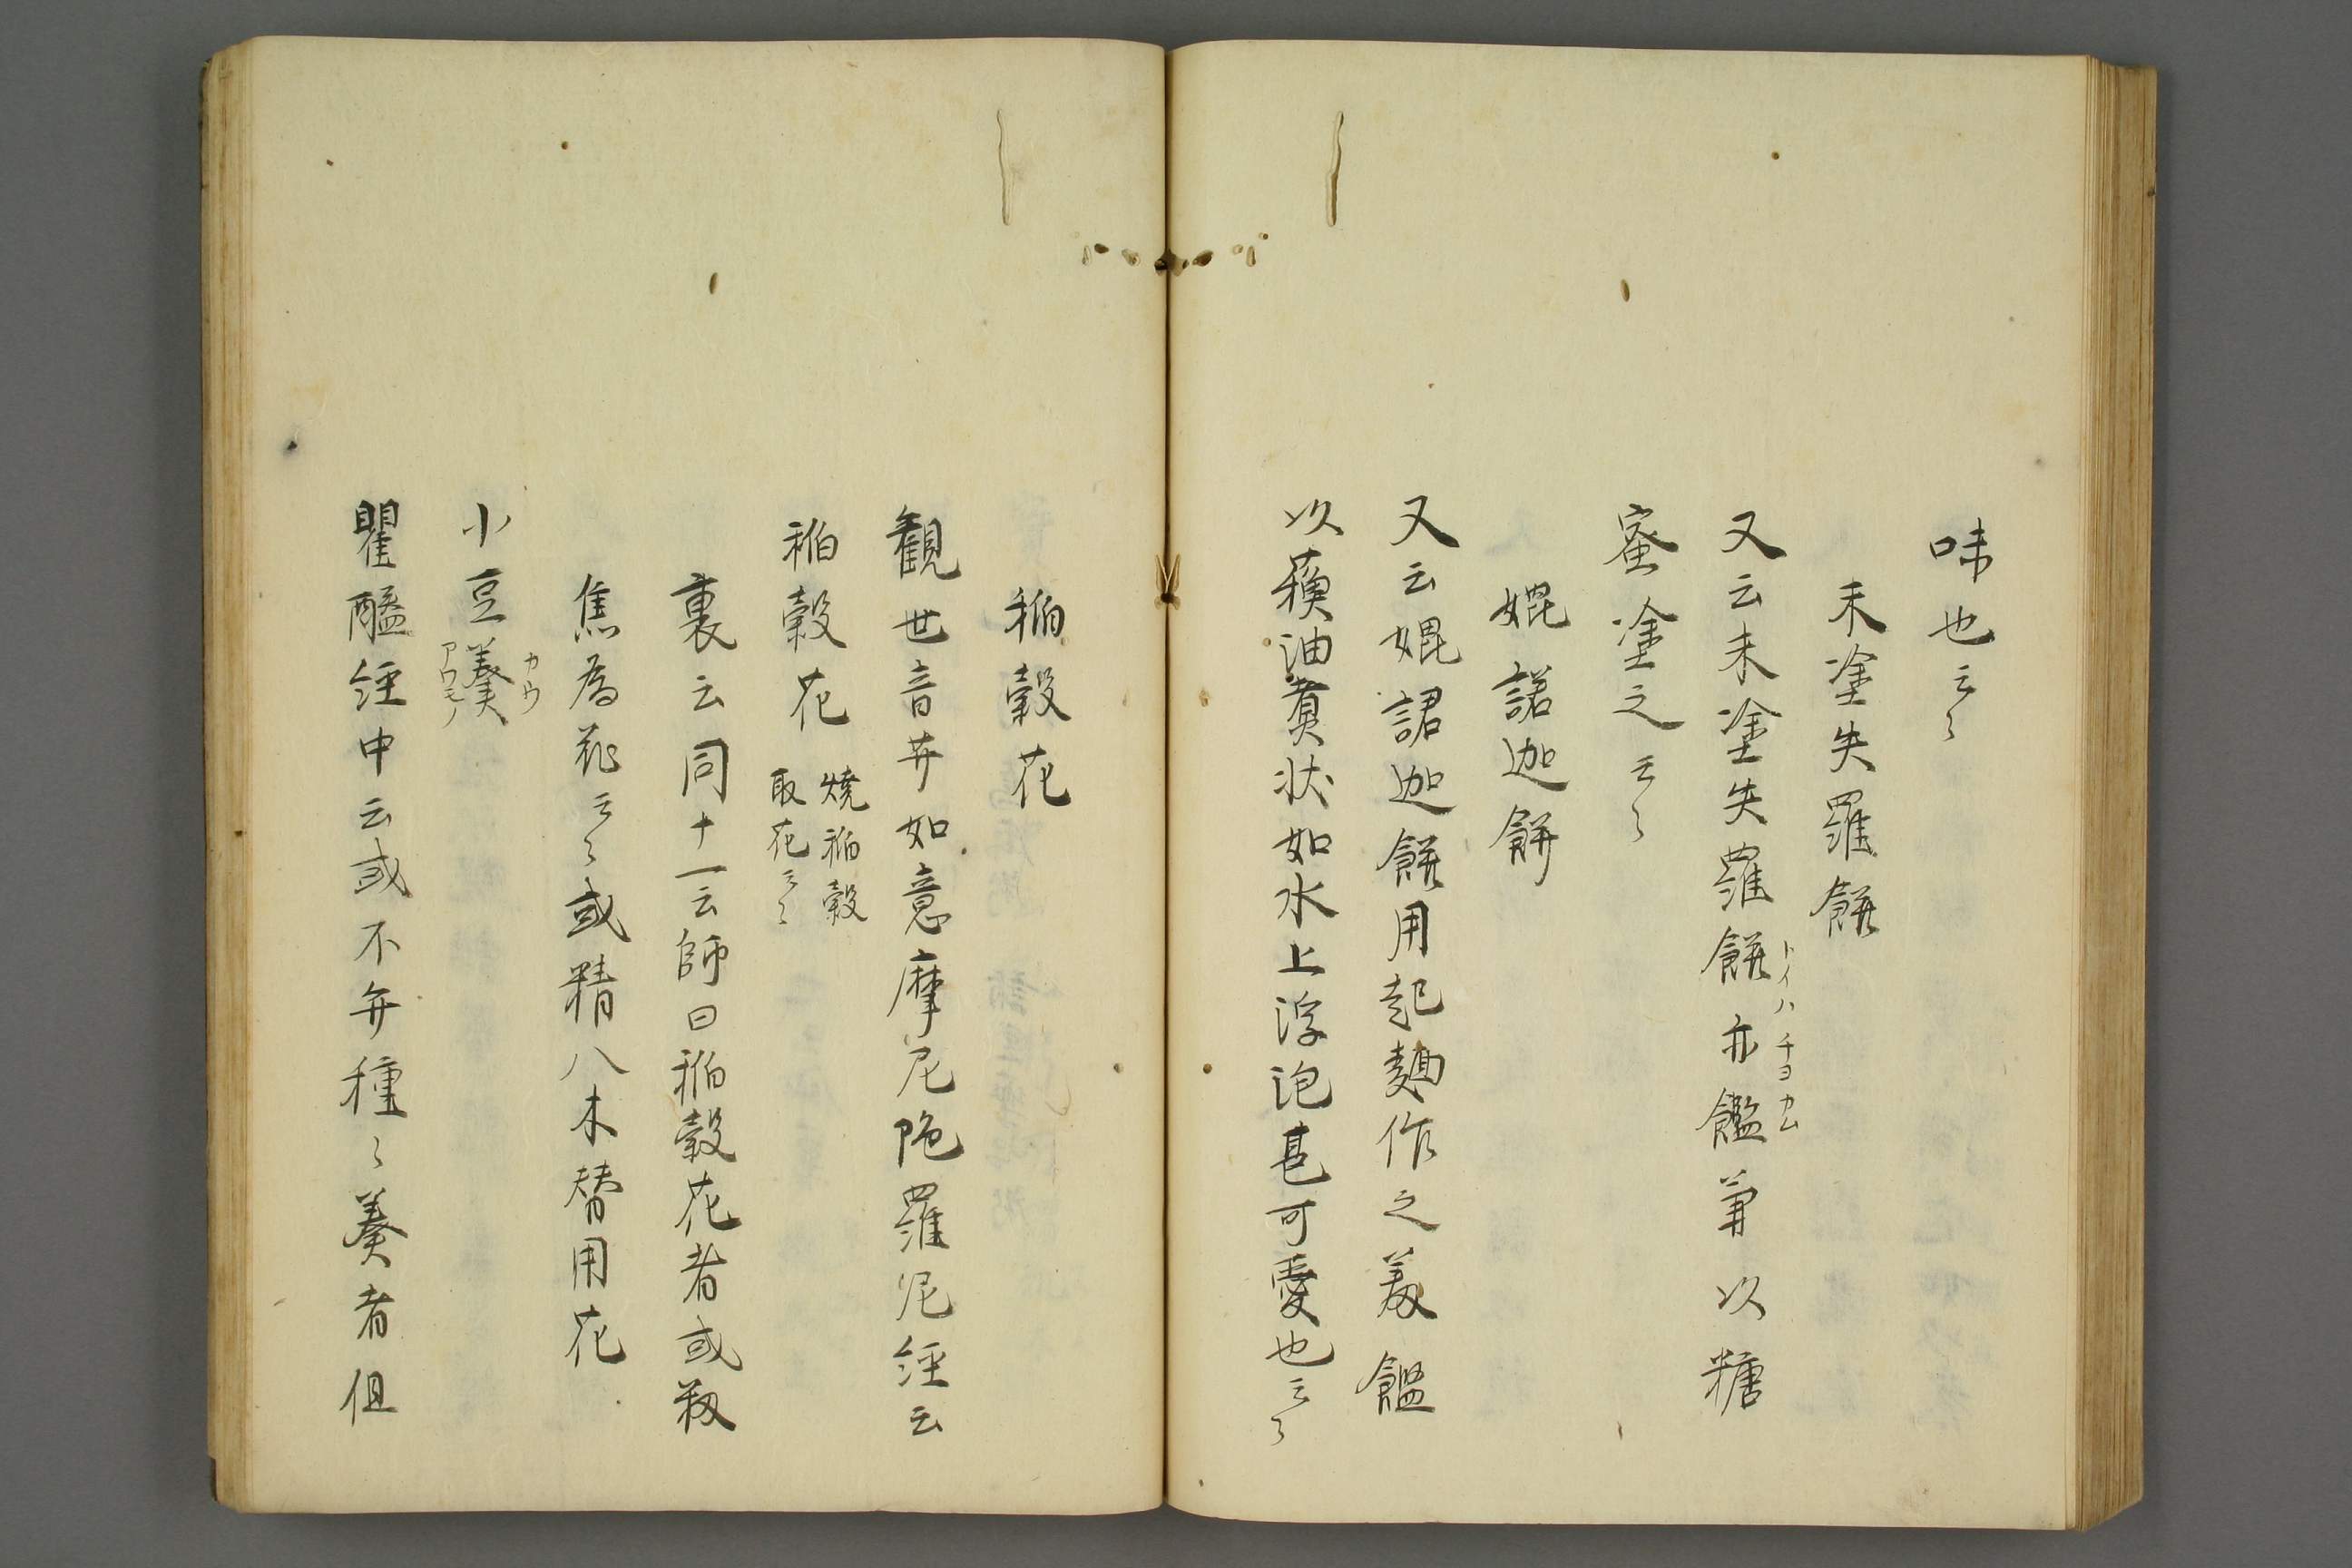 味也云〻
末塗失羅餅
又云末塗失羅餅亦鑑䒭以糖
トイハチヨカム
蜜塗之云〻
媲諾迦餅
又云媲諾迦餅用起麺作之羙饀
以蘓油煑状如水上浮泡甚可愛也云〻
稲穀花
観世音菩如意摩尼陁羅尼経云
稲穀花
焼稲穀
取花云〻
裏云同十一云師曰稲穀花者或籾
焦為花云〻或精八木替用花
小豆羹
カウ
アツモノ
瞿醯経中云或不弁種〻羹者但